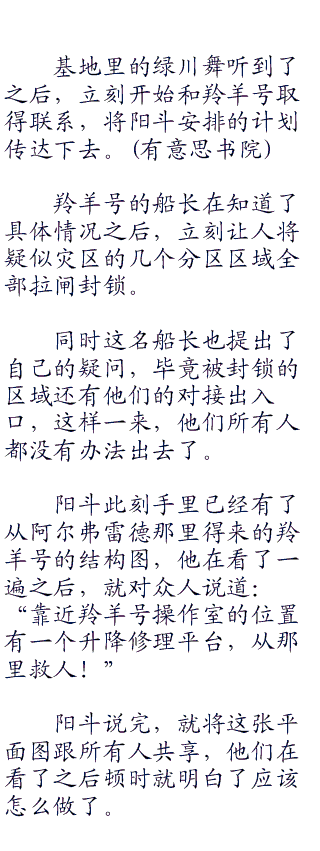 基地里的绿川舞听到了
之后，立刻开始和羚羊号取
得联系，将阳斗安排的计划
传达下去。(有意思书院)
羚羊号的船长在知道了
具体情况之后，立刻让人将
疑似灾区的几个分区区域全
部拉闸封锁。
同时这名船长也提出了
自己的疑问，毕竟被封锁的
区域还有他们的对接出入
口，这样一来，他们所有人
都没有办法出去了。
阳斗此刻手里已经有了
从阿尔弗雷德那里得来的羚
羊号的结构图，他在看了一
遍之后，就对众人说道：
“靠近羚羊号操作室的位置
有一个升降修理平台，从那
里救人！”
阳斗说完，就将这张平
面图跟所有人共享，他们在
看了之后顿时就明白了应该
怎么做了。